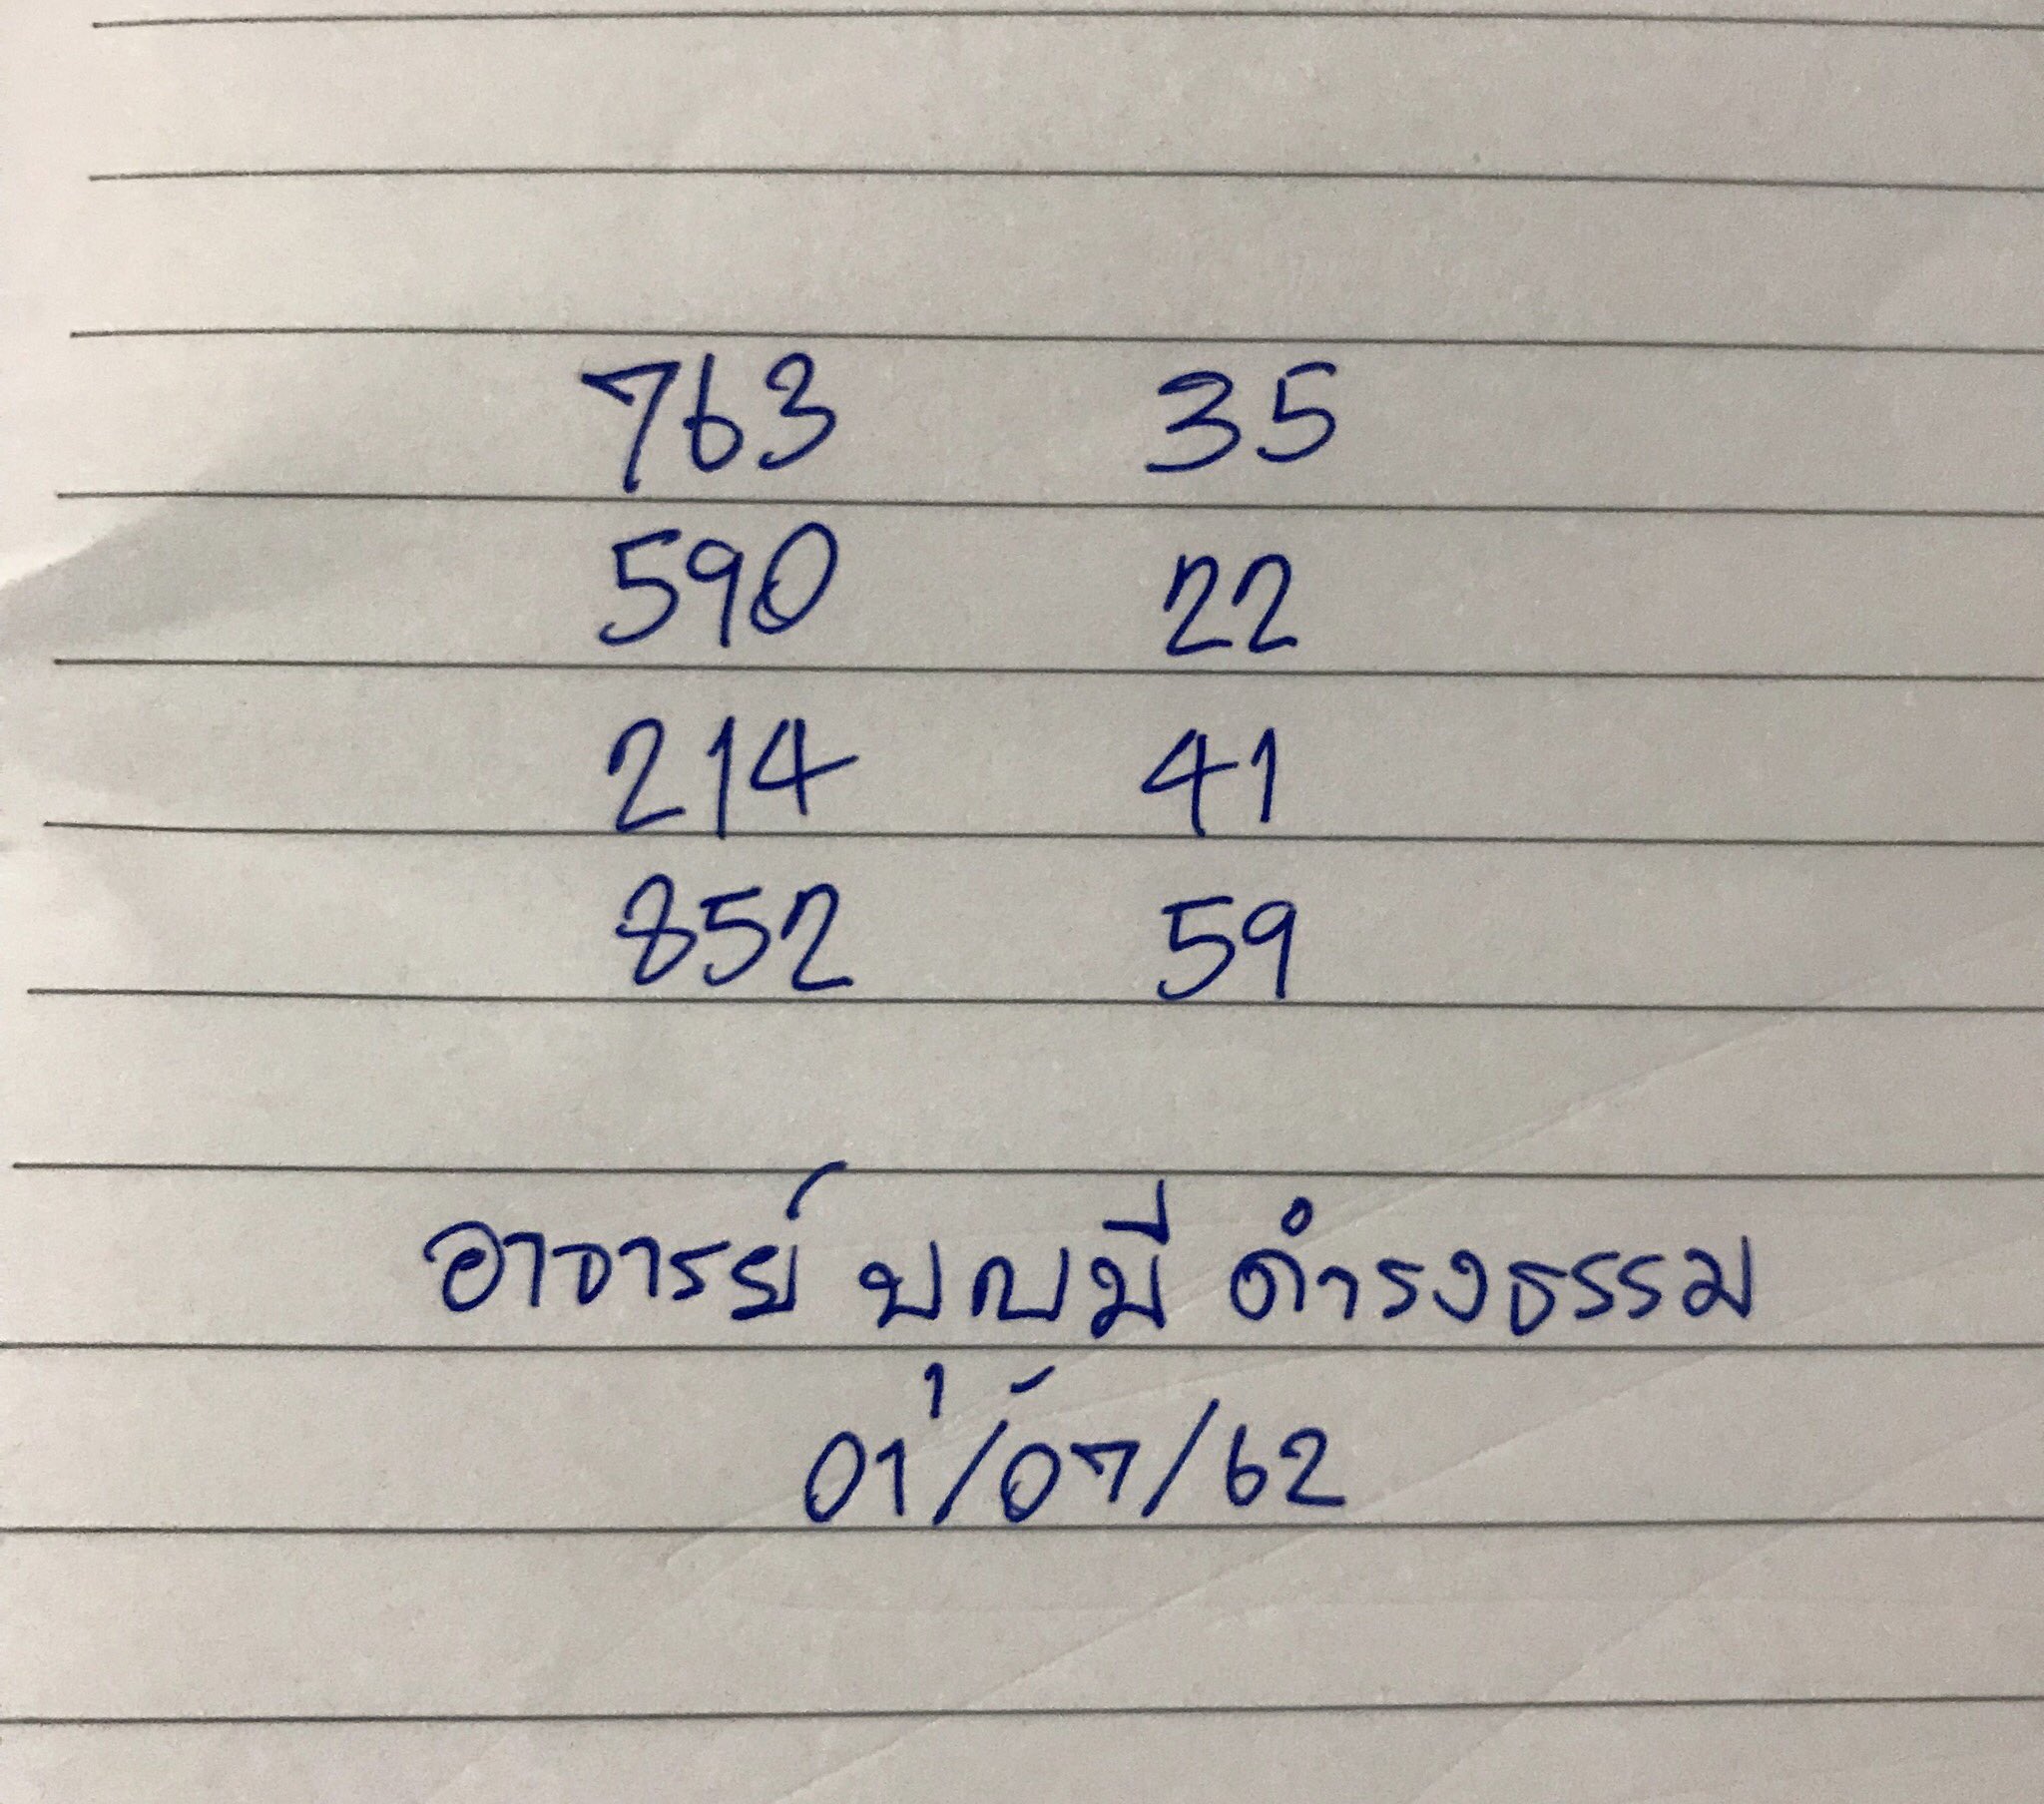 763 35
590 22
214 41
852 59
อาจารย์ บุญมี ดำรงธรรม
01/07/62